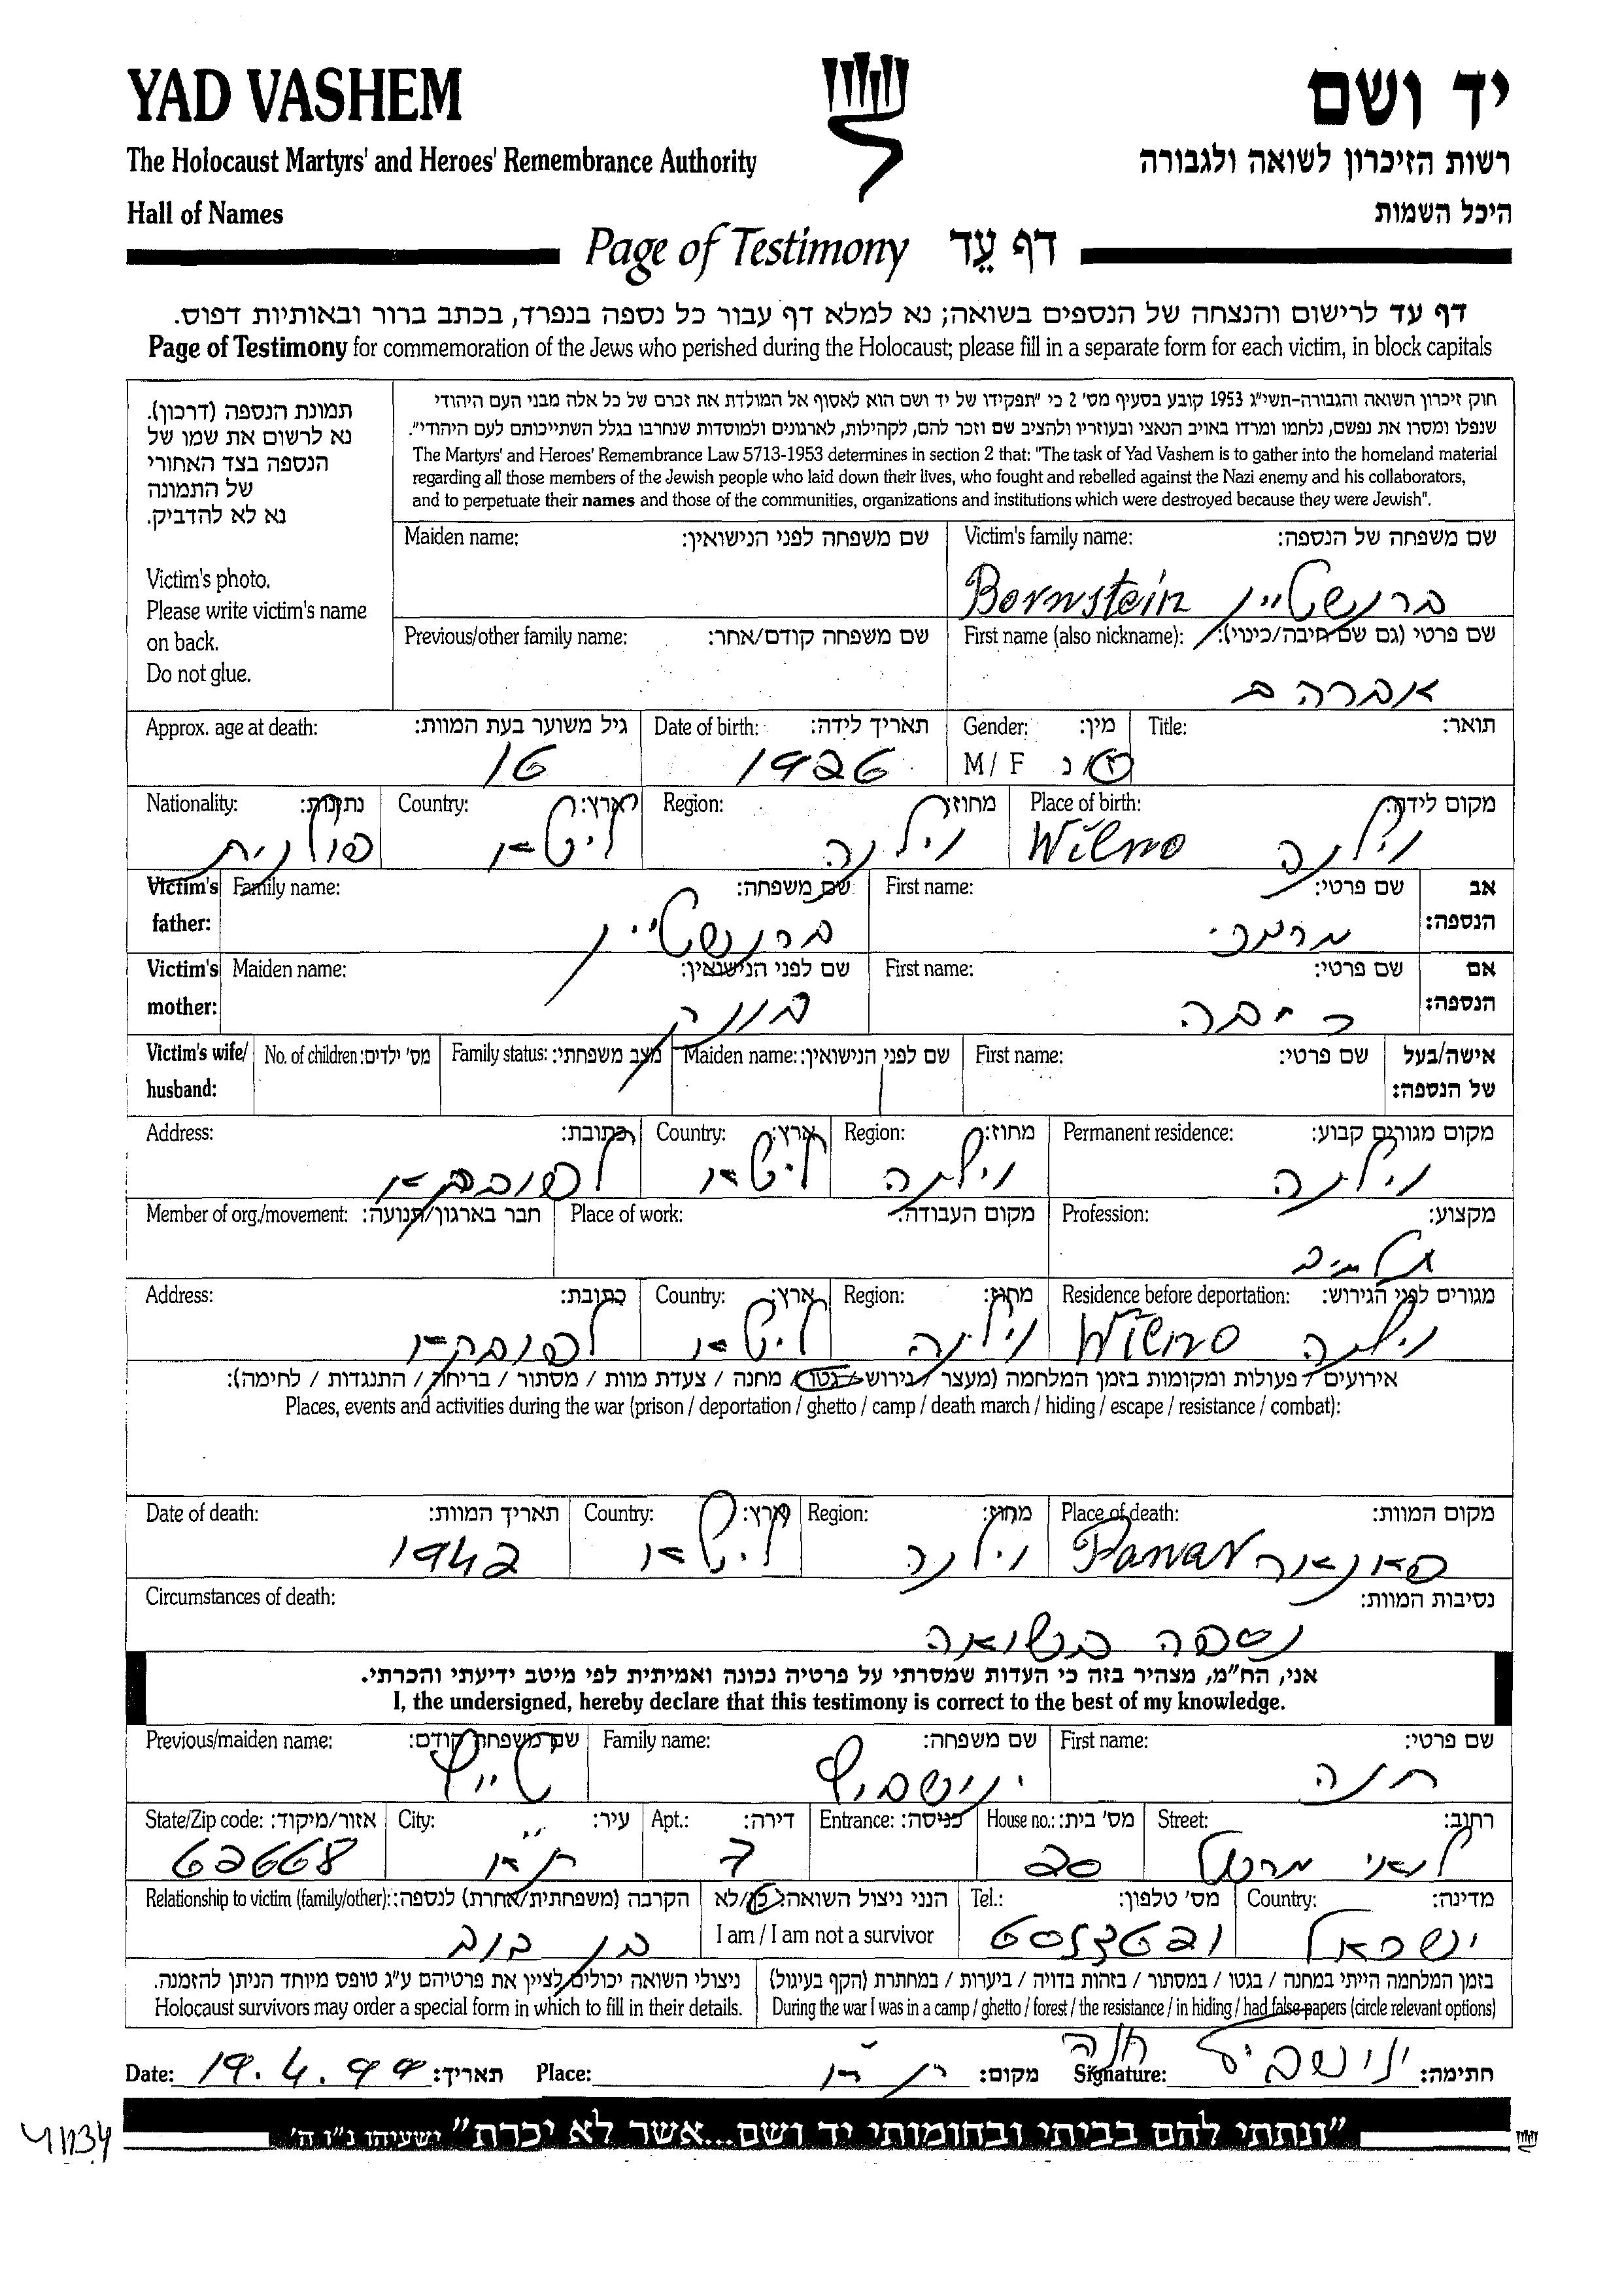 YAD VASHEM
יד ושם
The Holocaust Martyrs' and Heroes' Remembrance Authority
רשות הזיכרון לשואה ולגבורה
Hall of Names
היכל השמות
Page of Testimony דף עֵד
דף עד לרישום והנצחה של הנספים בשואה; נא למלא דף עבור כל נספה בנפרד, בכתב ברור ובאותיות דפוס.
Page of Testimony for commemoration of the Jews who perished during the Holocaust; please fill in a separate form for each victim, in block capitals
תמונת הנספה (דרכון).
נא לרשום את שמו של
הנספה בצד האחורי
של התמונה
נא לא להדביק.
Victim's photo.
Please write victim's name
on back.
Do not glue.
חוק זיכרון השואה והגבורה-תשי"ג 1953 קובע בסעיף מס' 2 כי "תפקידו של יד ושם הוא לאסוף אל המולדת את זכרם של כל אלה מבני העם היהודי
שנפלו ומסרו את נפשם, נלחמו ומרדו באויב הנאצי ובעוזריו ולהציב שם וזכר להם, לקהילות, לארגונים ולמוסדות שנחרבו בגלל השתייכותם לעם היהודי".
The Martyrs' and Heroes' Remembrance Law 5713-1953 determines in section 2 that: "The task of Yad Vashem is to gather into the homeland material
regarding all those members of the Jewish people who laid down their lives, who fought and rebelled against the Nazi enemy and his collaborators,
and to perpetuate their names and those of the communities, organizations and institutions which were destroyed because they were Jewish".
Maiden name: שם משפחה לפני הנישואין:
Victim's family name: שם משפחה של הנספה:
Bornstein ברנשטיין
Previous/other family name: שם משפחה קודם/אחר:
First name (also nickname): שם פרטי (גם שם חיבה/כינוי):
אברהם
Approx. age at death: גיל משוער בעת המוות:
16
Date of birth: תאריך לידה:
1926
Gender: מין:
M / F ז/נ
Title: תואר:
Nationality: נתינות:
פולנית
Country: ארץ:
ליטא
Region: מחוז:
וילנה
Place of birth: מקום לידה:
Wilno וילנה
Victim's father: אב הנספה:
Family name: שם משפחה:
ברנשטיין
First name: שם פרטי:
מרדכי
Victim's mother: אם הנספה:
Maiden name: שם לפני הנישואין:
First name: שם פרטי:
Victim's wife/husband: אישה/בעל של הנספה:
No. of children: מס' ילדים:
Family status: מצב משפחתי:
Maiden name: שם לפני הנישואין:
First name: שם פרטי:
Address: כתובת:
Country: ארץ:
ליטא
Region: מחוז:
וילנה
Permanent residence: מקום מגורים קבוע:
וילנה
Member of org./movement: חבר בארגון/תנועה:
Place of work: מקום העבודה:
Profession: מקצוע:
תלמיד
Address: כתובת:
Country: ארץ:
ליטא
Region: מחוז:
וילנה
Residence before deportation: מגורים לפני הגירוש:
Wilno וילנה
אירועים / פעולות ומקומות בזמן המלחמה (מעצר / גירוש / גטו / מחנה / צעדת מוות / מסתור / בריחה / התנגדות / לחימה):
Places, events and activities during the war (prison / deportation / ghetto / camp / death march / hiding / escape / resistance / combat):
Date of death: תאריך המוות:
1942
Country: ארץ:
ליטא
Region: מחוז:
וילנה
Place of death: מקום המוות:
Ponar פאנאר
Circumstances of death: נסיבות המוות:
נספה בשואה
אני, הח"מ, מצהיר בזה כי העדות שמסרתי על פרטיה נכונה ואמיתית לפי מיטב ידיעתי והכרתי.
I, the undersigned, hereby declare that this testimony is correct to the best of my knowledge.
Previous/maiden name: שם משפחה קודם:
Family name: שם משפחה:
First name: שם פרטי:
חנה
State/Zip code: אזור/מיקוד:
62668
City: עיר:
ת"א
Apt.: דירה:
7
Entrance: כניסה:
House no.: מס' בית:
20
Street: רחוב:
Relationship to victim (family/other): הקרבה (משפחתית/אחרת) לנספה:
בן דוד
הנני ניצול השואה: כן/לא
I am / I am not a survivor
Tel.: מס' טלפון:
6053621
Country: מדינה:
ישראל
ניצולי השואה יכולים לציין את פרטיהם ע"ג טופס מיוחד הניתן להזמנה.
Holocaust survivors may order a special form in which to fill in their details.
בזמן המלחמה הייתי במחנה / בגטו / במסתור / בזהות בדויה / ביערות / במחתרת (הקף בעיגול)
During the war I was in a camp / ghetto / forest / the resistance / in hiding / had false papers (circle relevant options)
Date: 19.4.99 תאריך:
Place: ת"א מקום:
Signature: חנה חתימה:
"ונתתי להם בביתי ובחומותי יד ושם...אשר לא יכרת" ישעיהו נ"ו ה'